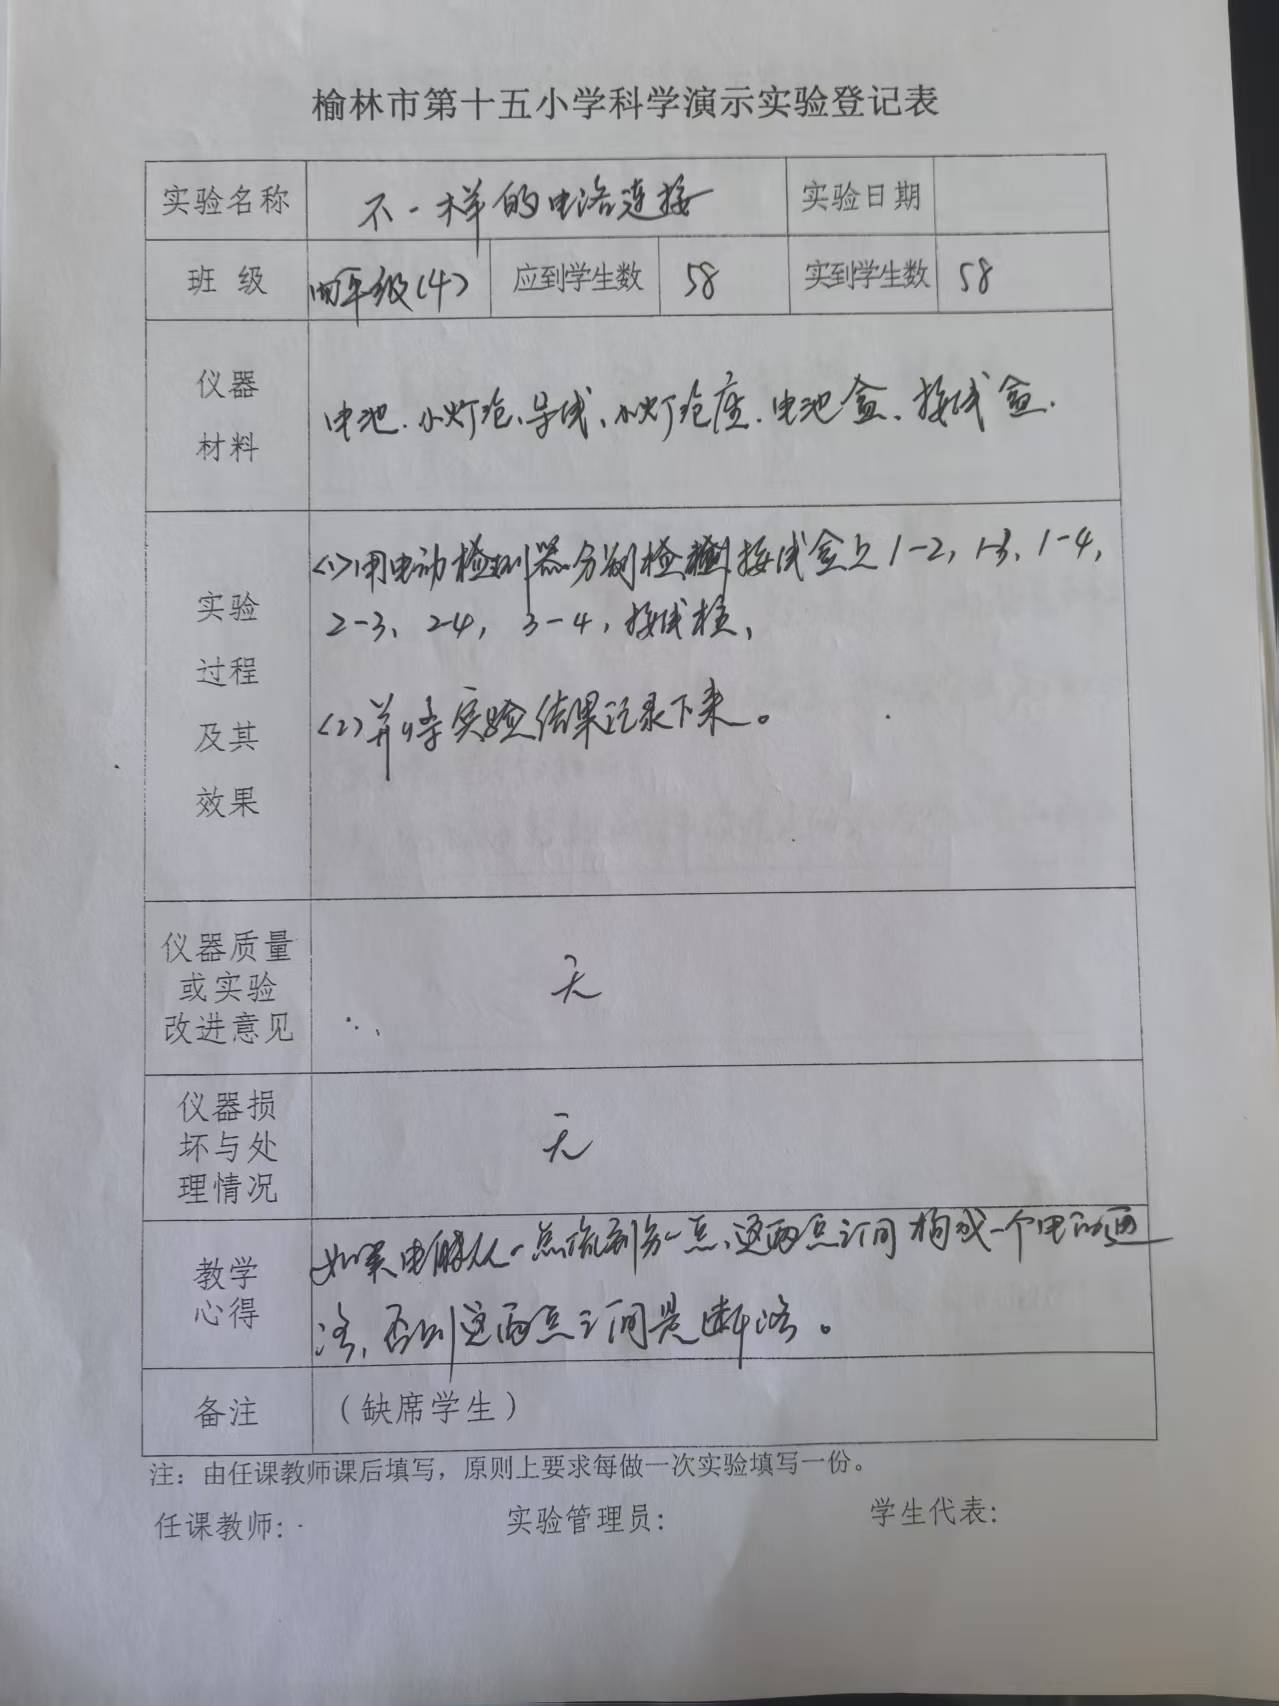 榆林市第十五小学科学演示实验登记表
实验名称 不一样的电路连接 实验日期
班 级 四年级(4) 应到学生数 58 实到学生数 58
仪器
材料
电池、小灯泡、导线、小灯泡座、电池盒、接线盒.
实验
过程
及其
效果
<1>用电动检测器分别检测接线盒上1-2, 1-3, 1-4,
2-3、2-4, 3-4,接线柱、
<2>并将实验结果记录下来。
仪器质量
或实验
改进意见
无
仪器损
坏与处
理情况
无
教学
心得
如果电能从一点流到另一点,这两点之间构成一个电的通
路,否则这两点之间是断路。
备注 (缺席学生)
注：由任课教师课后填写，原则上要求每做一次实验填写一份。
任课教师: 实验管理员: 学生代表: